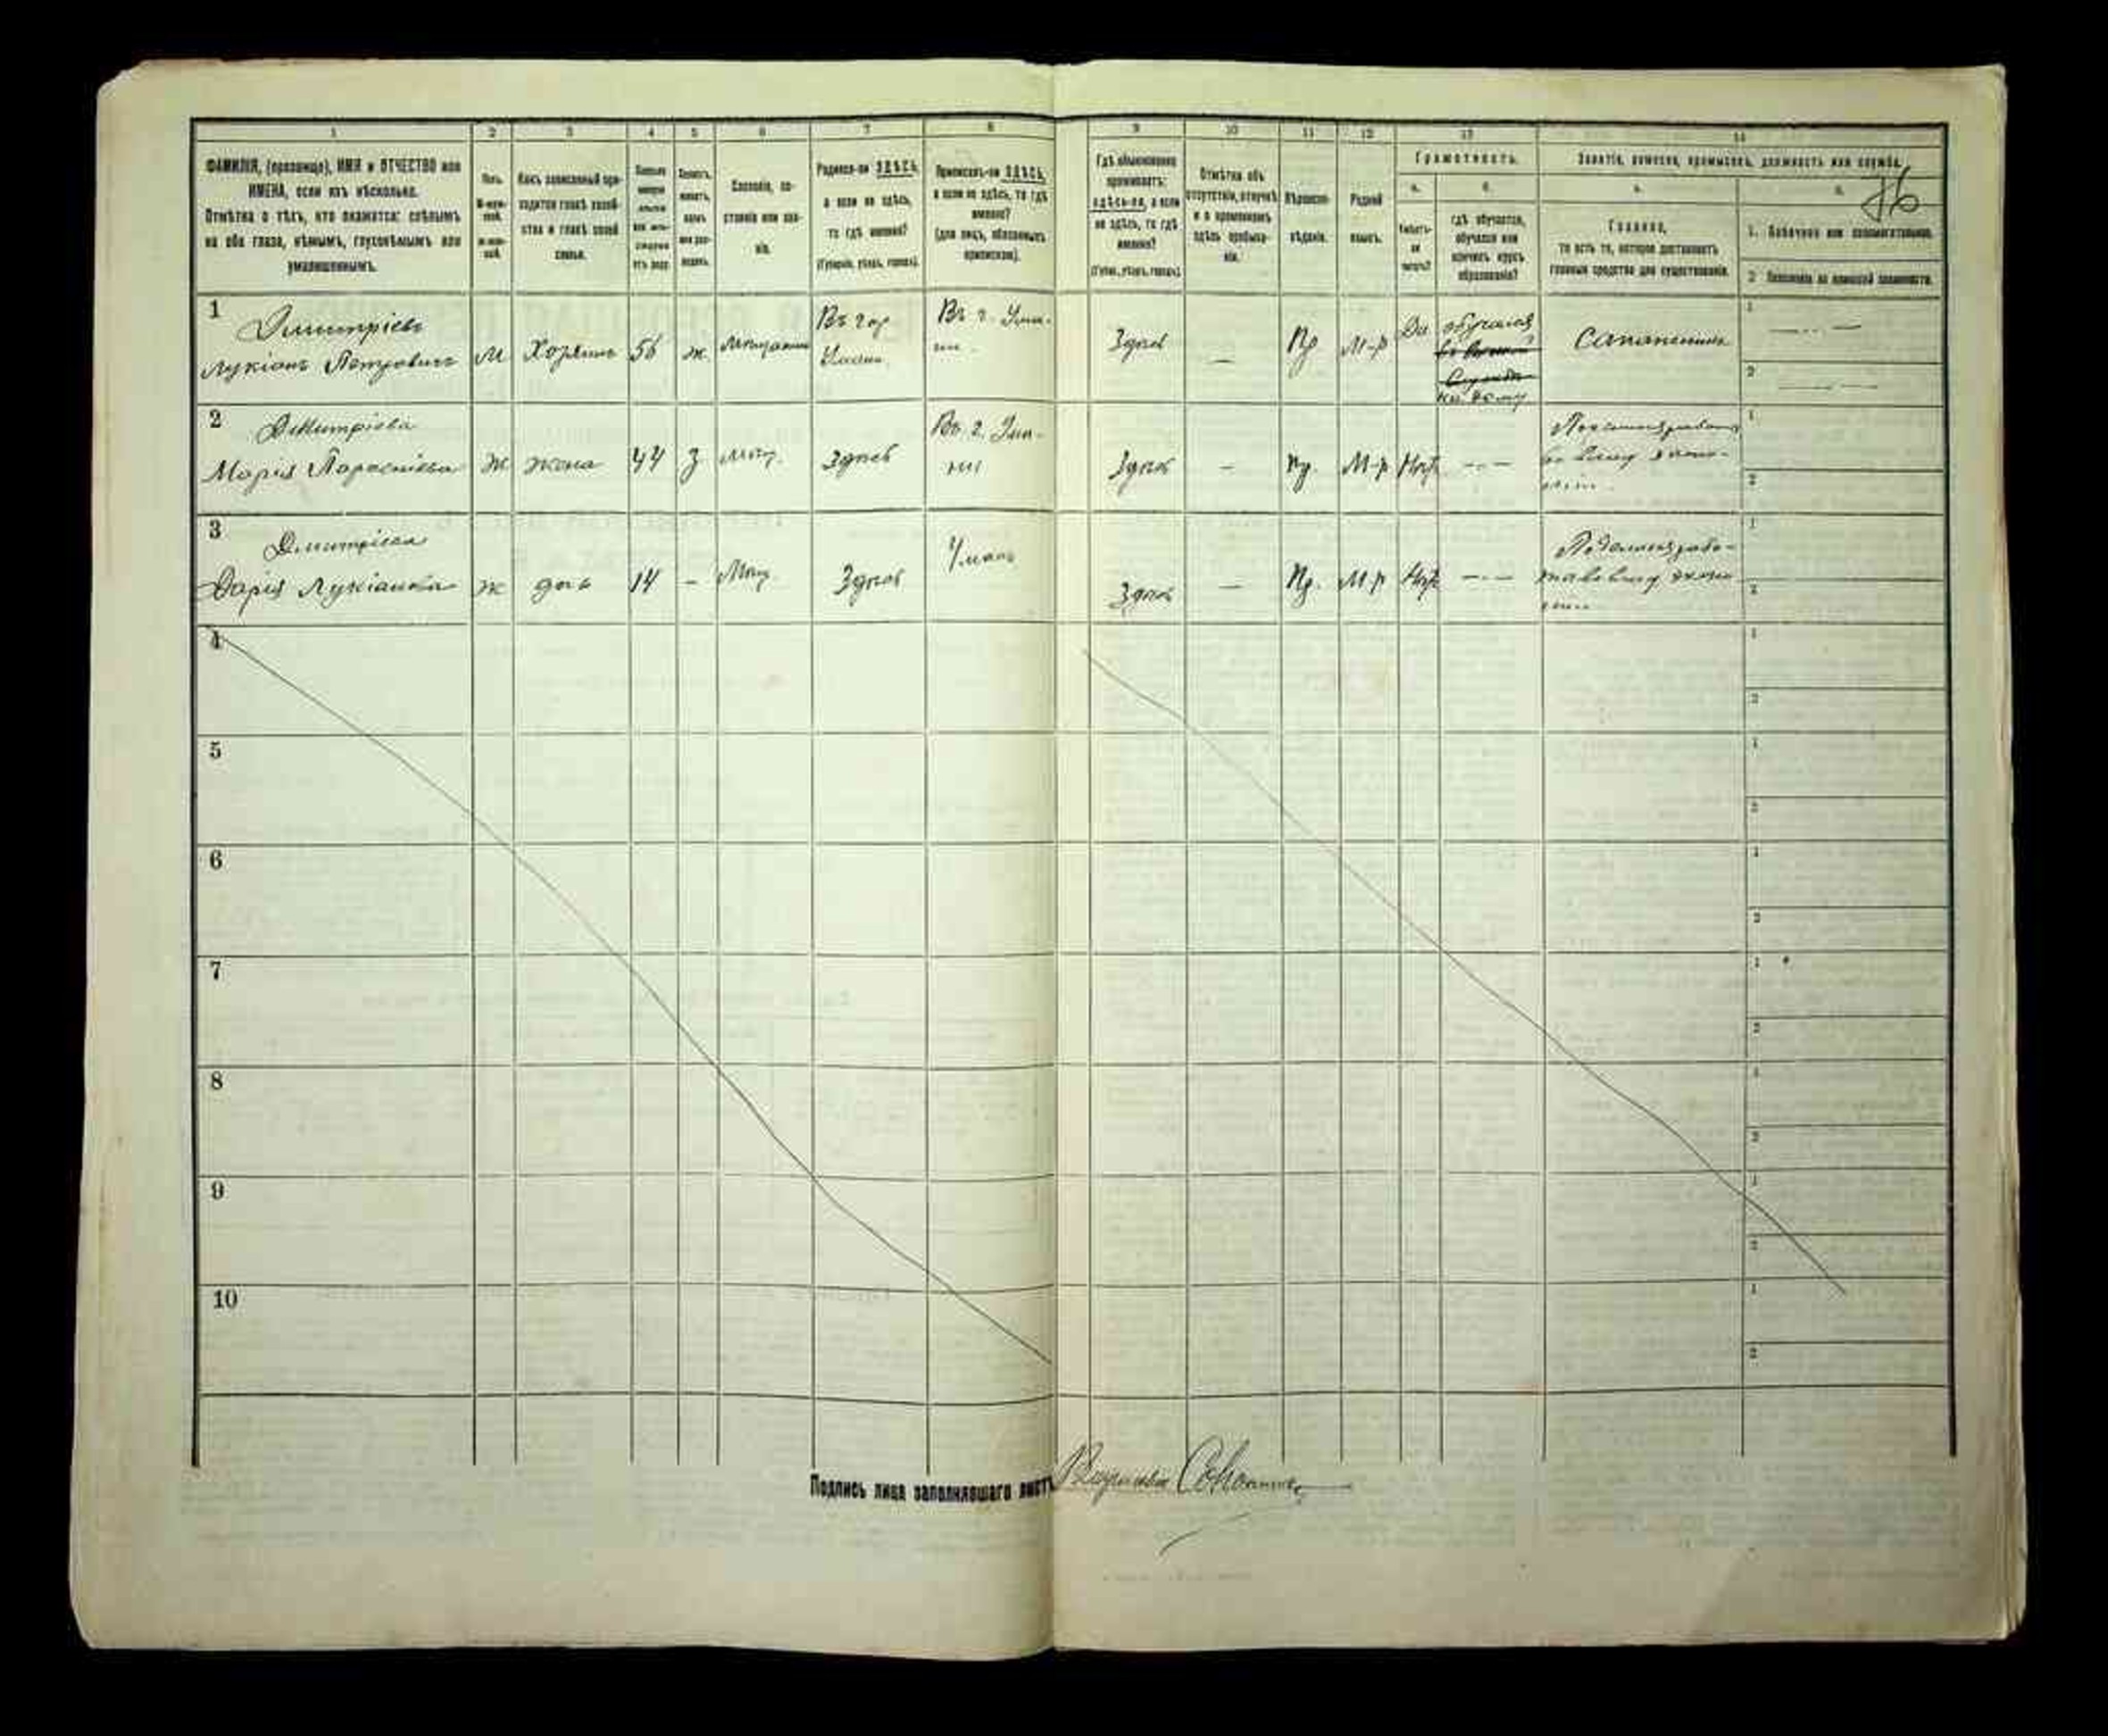 1 2 3 4 5 6 7 8 9 10 11 12 13 14
ФАМИЛІЯ, (прозвище), ИМЯ и ОТЧЕСТВО или
ИМЕНА, если ихъ нѣсколько.
Отмѣтка о тѣхъ, кто окажется: слѣпымъ
на оба глаза, нѣмымъ, глухонѣмымъ или
умалишеннымъ.
Полъ.
М-муж-
ской.
Ж-жен-
ской.
Какъ записанный при-
ходится главѣ хозяй-
ства и главѣ своей
семьи.
Сколько
Холостъ,
женатъ,
вдовъ
или раз-
веденъ.
Сословіе, со-
стояніе или зва-
ніе.
Родился-ли ЗДѢСЬ,
а если не здѣсь,
то гдѣ именно?
(Губернія, уѣздъ, городъ).
Приписанъ-ли ЗДѢСЬ,
а если не здѣсь, то гдѣ
именно?
(для лицъ, обязанныхъ
припискою).
Гдѣ обыкновенно
проживаетъ:
здѣсь-ли, а если
не здѣсь, то гдѣ
именно?
(Губ., уѣздъ, городъ).
Отмѣтка объ
отсутствіи, отлучкѣ
и о временномъ
здѣсь пребыва-
ніи.
Вѣроиспо-
вѣданіе.
Родной
языкъ.
Грамотность.
а.
Умѣетъ-
ли
читать?
б.
гдѣ обучается,
обучался или
кончилъ курсъ
образованія?
Занятіе, ремесло, промыселъ, должность или служба.
а.
Главное,
то есть то, которое доставляетъ
главныя средства для существованія.
б.
1. Побочное или вспомогательное.
2 Положеніе по воинской повинности.
86
1
Димитріевъ
Лукіанъ Петровичъ
М
Хозяинъ
56
ж.
Мѣщанинъ
Въ гор
Умани
Въ г. Ума-
ни
Здѣсь
—
Пр
М-р
Да
обучался
на дому
Сапожникъ
1
2
2
Димитріева
Марія
Ж
жена
44
З
Мѣщ.
Здѣсь
Въ г. Ума-
ни
Здѣсь
—
Пр.
М-р
Нѣтъ
— —
1
2
3
Димитріева
Дарія Лукіановна
Ж
дочь
14
–
Мѣщ
Здѣсь
Умань
Здѣсь
—
Пр.
М-р
Нѣтъ
— —
1
2
4
1
2
5
1
2
6
1
2
7
1
2
8
1
2
9
1
2
10
1
2
Подпись лица заполнявшаго листъ